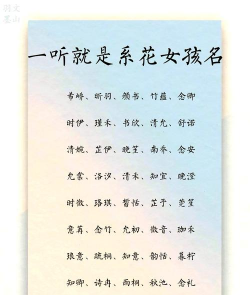 一听就是系花女孩名
希峤、昕羽、颜书、竹蕴、念卿
时伊、瑾禾、书欣、清允、舒诺
清婉、芷伊、晚笙、南乔、念安
允棠、洛汐、清禾、知宜、晚澄
时微、珞琪、皙恬、芷予、芝笙
意苒、念竹、允初、徽音、珈禾
琅意、疏桐、知意、韵恬、暮柠
知卿、诗冉、雨桐、秋池、念礼